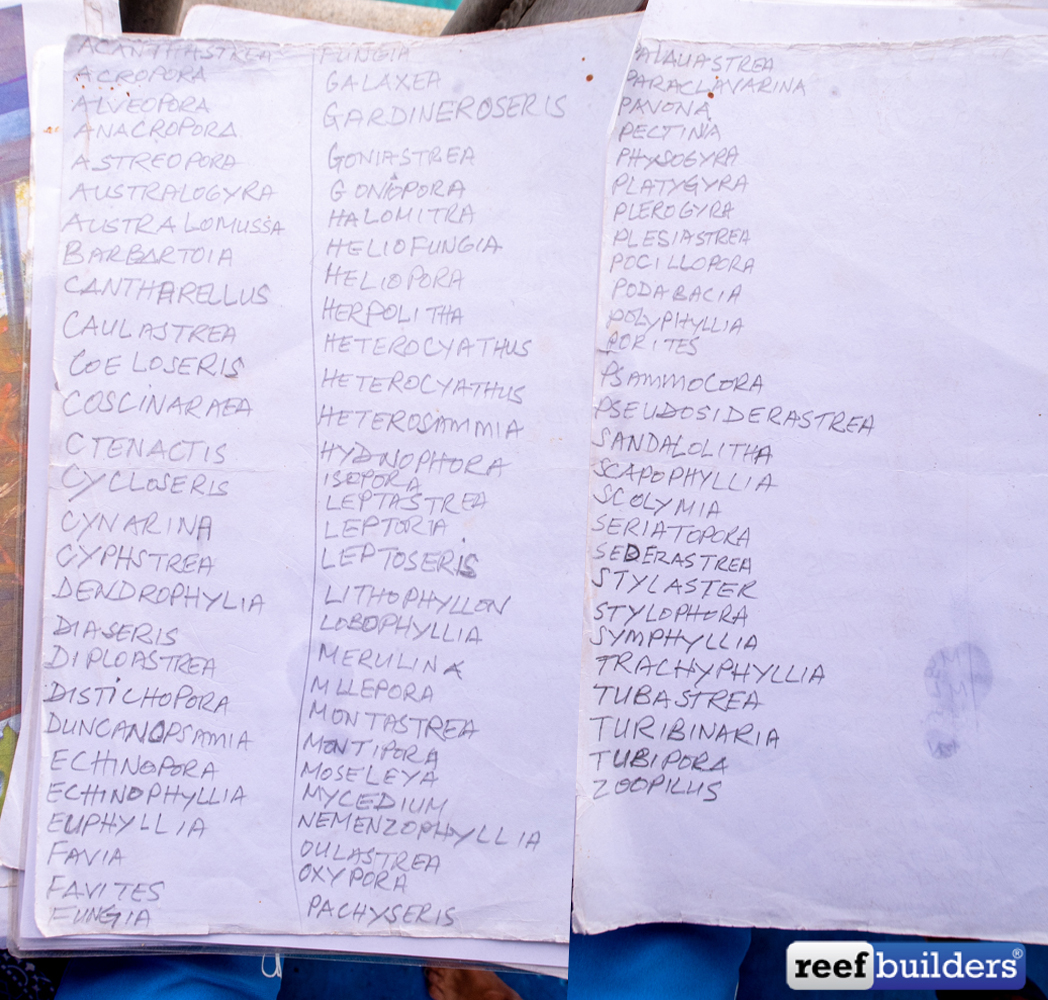 ACANTHASTREA
ACROPORA
ALVEOPORA
ANACROPORA
ASTREOPORA
AUSTRALOGYRA
AUSTRALOMUSSA
BARBARTOIA
CANTHARELLUS
CAULASTREA
COELOSERIS
COSCINARAEA
CTENACTIS
CYCLOSERIS
CYNARINA
CYPHSTREA
DENDROPHYLIA
DIASERIS
DIPLOASTREA
DISTICHOPORA
DUNCANOPSAMIA
ECHINOPORA
ECHINOPHYLLIA
EUPHYLLIA
FAVIA
FAVITES
FUNGIA
FUNGIA
GALAXEA
GARDINEROSERIS
GONIASTREA
GONIOPORA
HALOMITRA
HELIOFUNGIA
HELIOPORA
HERPOLITHA
HETEROCYATHUS
HETEROCYATHUS
HETEROSAMMIA
HYDNOPHORA
ISOPORA
LEPTASTREA
LEPTORIA
LEPTOSERIS
LITHOPHYLLON
LOBOPHYLLIA
MERULINA
MLLEPORA
MONTASTREA
MONTIPORA
MOSELEYA
MYCEDIUM
NEMENZOPHYLLIA
OULASTREA
OXYPORA
PACHYSERIS
PALAUASTREA
PARACLAVARINA
PAVONA
PECTINA
PHYSOGYRA
PLATYGYRA
PLEROGYRA
PLESIASTREA
POCILLOPORA
PODABACIA
POLYPHYLLIA
PORITES
PSAMMOCORA
PSEUDOSIDERASTREA
SANDALOLITHA
SCAPOPHYLLIA
SCOLYMIA
SERIATOPORA
SEDERASTREA
STYLASTER
STYLOPHORA
SYMPHYLLIA
TRACHYPHYLLIA
TUBASTREA
TURIBINARIA
TUBIPORA
ZOOPILUS
reefbuilders®